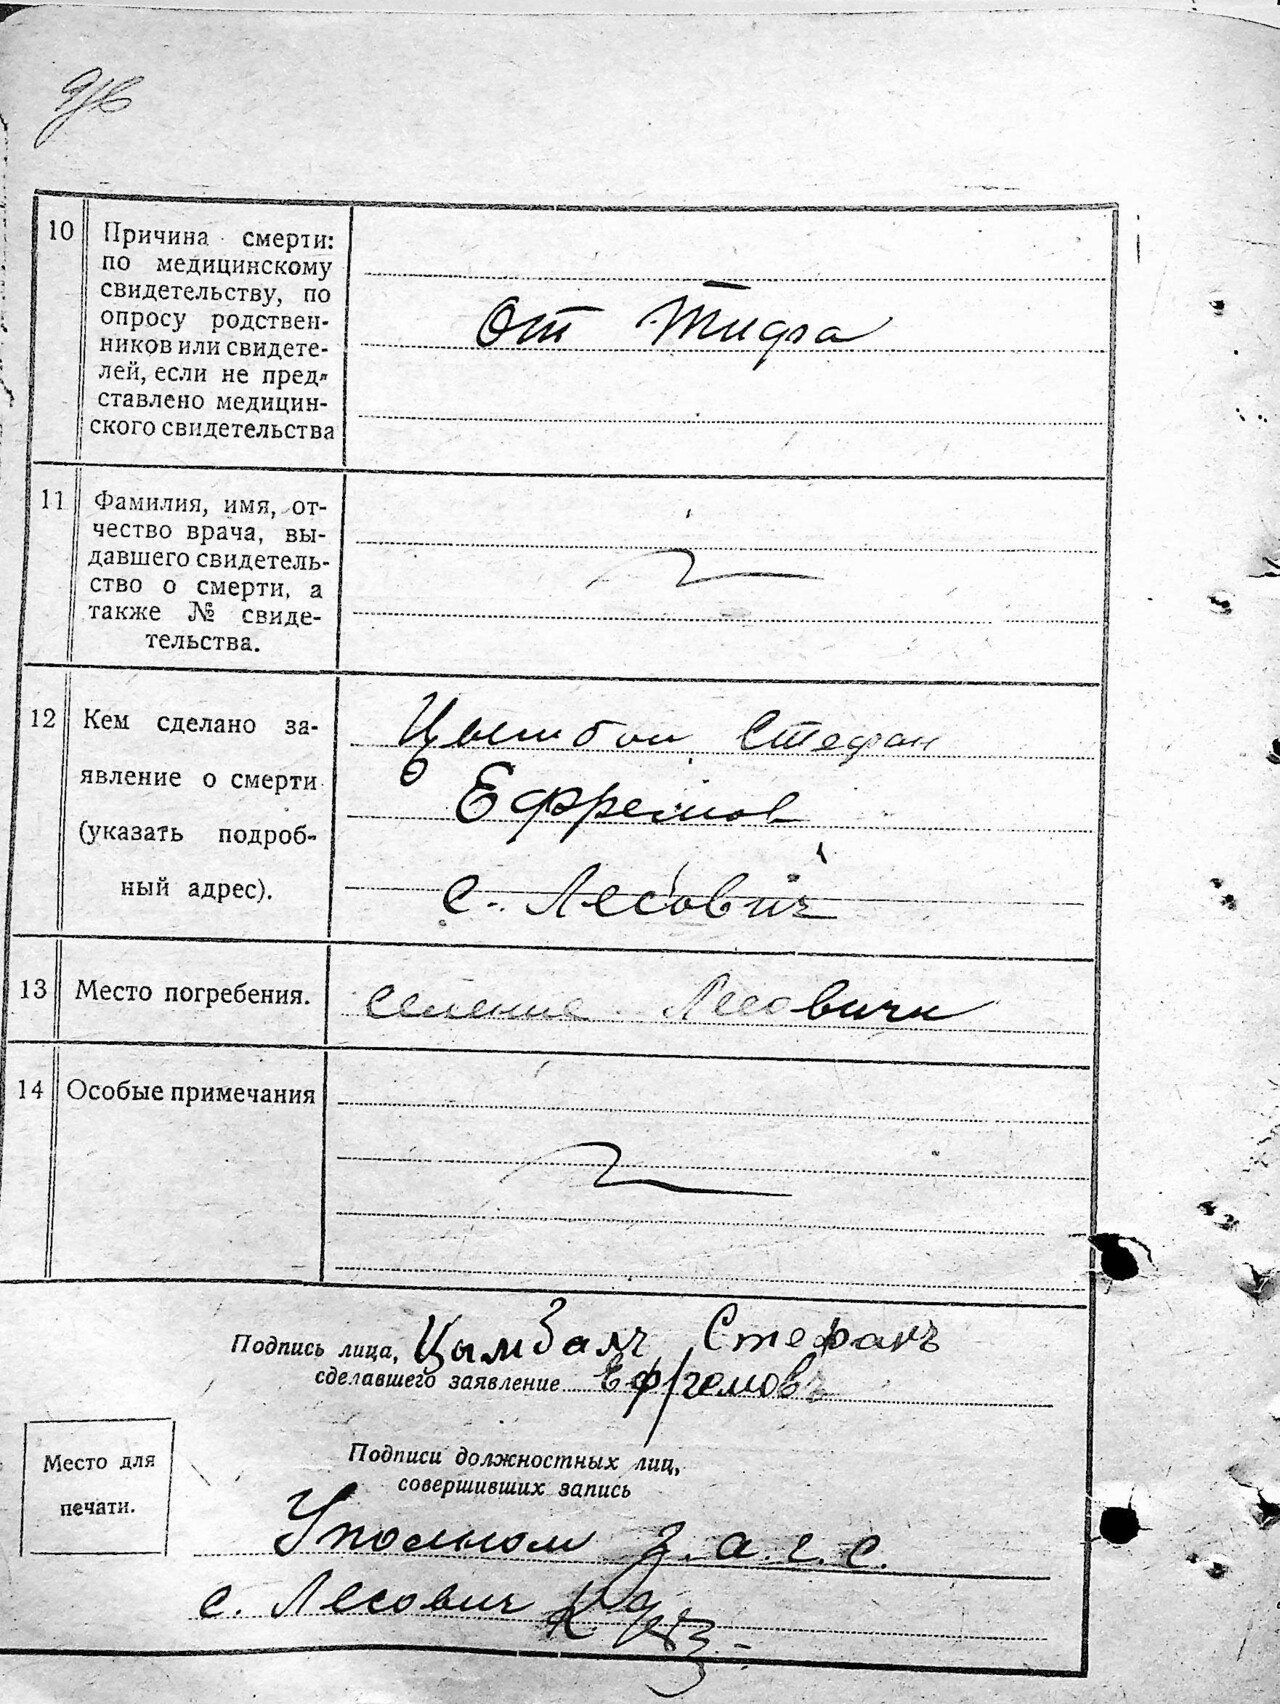 10 Причина смерти:
по медицинскому
свидетельству, по
опросу родствен-
ников или свидете-
лей, если не пред-
ставлено медицин-
ского свидетельства
От Тифа
11 Фамилия, имя, от-
чество врача, вы-
давшего свидетель-
ство о смерти, а
также № свиде-
тельства.
12 Кем сделано за-
явление о смерти
(указать подроб-
ный адрес).
Цымбал Стефан
Ефремов
с. Лесович
13 Место погребения.
Селение Лесовичи
14 Особые примечания
Подпись лица, Цымбалъ Стефанъ
сделавшего заявление Ефремовъ
Место для
печати.
Подписи должностных лиц,
совершивших запись
Уполном з.а.г.с.
с. Лесович